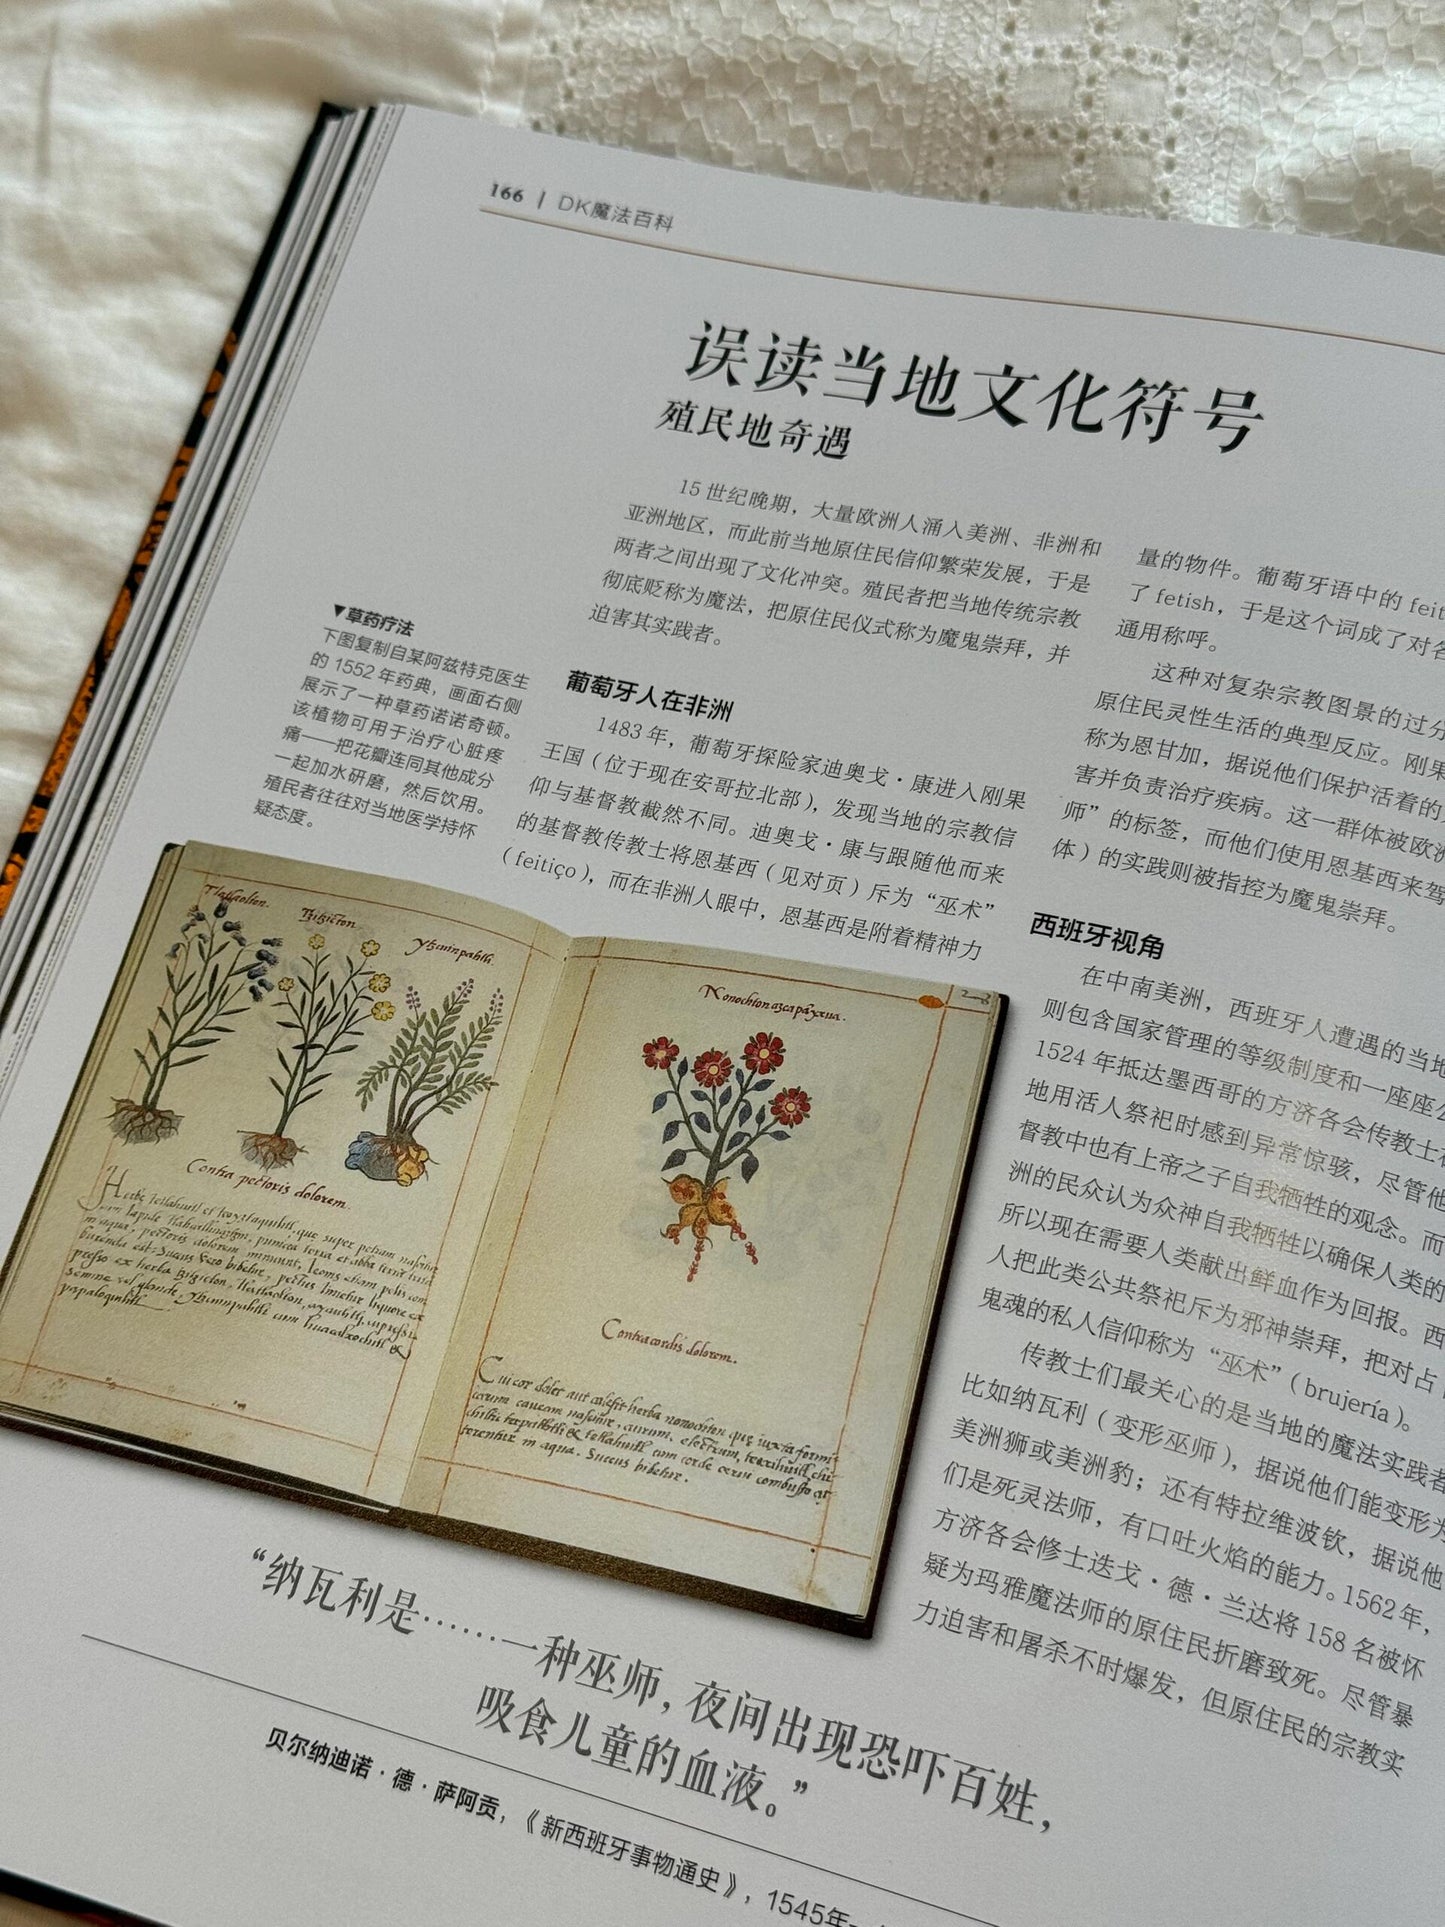 166 | DK魔法百科
误读当地文化符号
殖民地奇遇
15 世纪晚期，大量欧洲人涌入美洲、非洲和
亚洲地区，而此前当地原住民信仰繁荣发展，于是
两者之间出现了文化冲突。殖民者把当地传统宗教
彻底贬称为魔法，把原住民仪式称为魔鬼崇拜，并
迫害其实践者。
▼草药疗法
下图复制自某阿兹特克医生
的 1552 年药典，画面右侧
展示了一种草药诺诺奇顿。
该植物可用于治疗心脏疼
痛——把花瓣连同其他成分
一起加水研磨，然后饮用。
殖民者往往对当地医学持怀
疑态度。
葡萄牙人在非洲
1483 年，葡萄牙探险家迪奥戈·康进入刚果
王国（位于现在安哥拉北部），发现当地的宗教信
仰与基督教截然不同。迪奥戈·康与跟随他而来
的基督教传教士将恩基西（见对页）斥为“巫术”
（feitiço），而在非洲人眼中，恩基西是附着精神力
量的物件。葡萄牙语中的 feit
了 fetish，于是这个词成了对各
通用称呼。
这种对复杂宗教图景的过分
原住民灵性生活的典型反应。刚果
称为恩甘加，据说他们保护活着的
害并负责治疗疾病。这一群体被欧洲
师”的标签，而他们使用恩基西来驾
体）的实践则被指控为魔鬼崇拜。
西班牙视角
在中南美洲，西班牙人遭遇的当地
则包含国家管理的等级制度和一座座公
1524 年抵达墨西哥的方济各会传教士
地用活人祭祀时感到异常惊骇，尽管他
督教中也有上帝之子自我牺牲的观念。而
洲的民众认为众神自我牺牲以确保人类的
所以现在需要人类献出鲜血作为回报。西
人把此类公共祭祀斥为邪神崇拜，把对占
鬼魂的私人信仰称为“巫术”（brujería）。
传教士们最关心的是当地的魔法实践者
比如纳瓦利（变形巫师），据说他们能变形为
美洲狮或美洲豹；还有特拉维波钦，据说他
们是死灵法师，有口吐火焰的能力。1562 年，
方济各会修士迭戈·德·兰达将 158 名被怀
疑为玛雅魔法师的原住民折磨致死。尽管暴
力迫害和屠杀不时爆发，但原住民的宗教实
Tlahaolton.
Tzizicton.
Contra pectoris dolorem.
Nonochton azcapayxua.
Contra cordis dolorem.
“纳瓦利是……一种巫师，夜间出现恐吓百姓，
吸食儿童的血液。”
贝尔纳迪诺·德·萨阿贡，《新西班牙事物通史》，1545年—